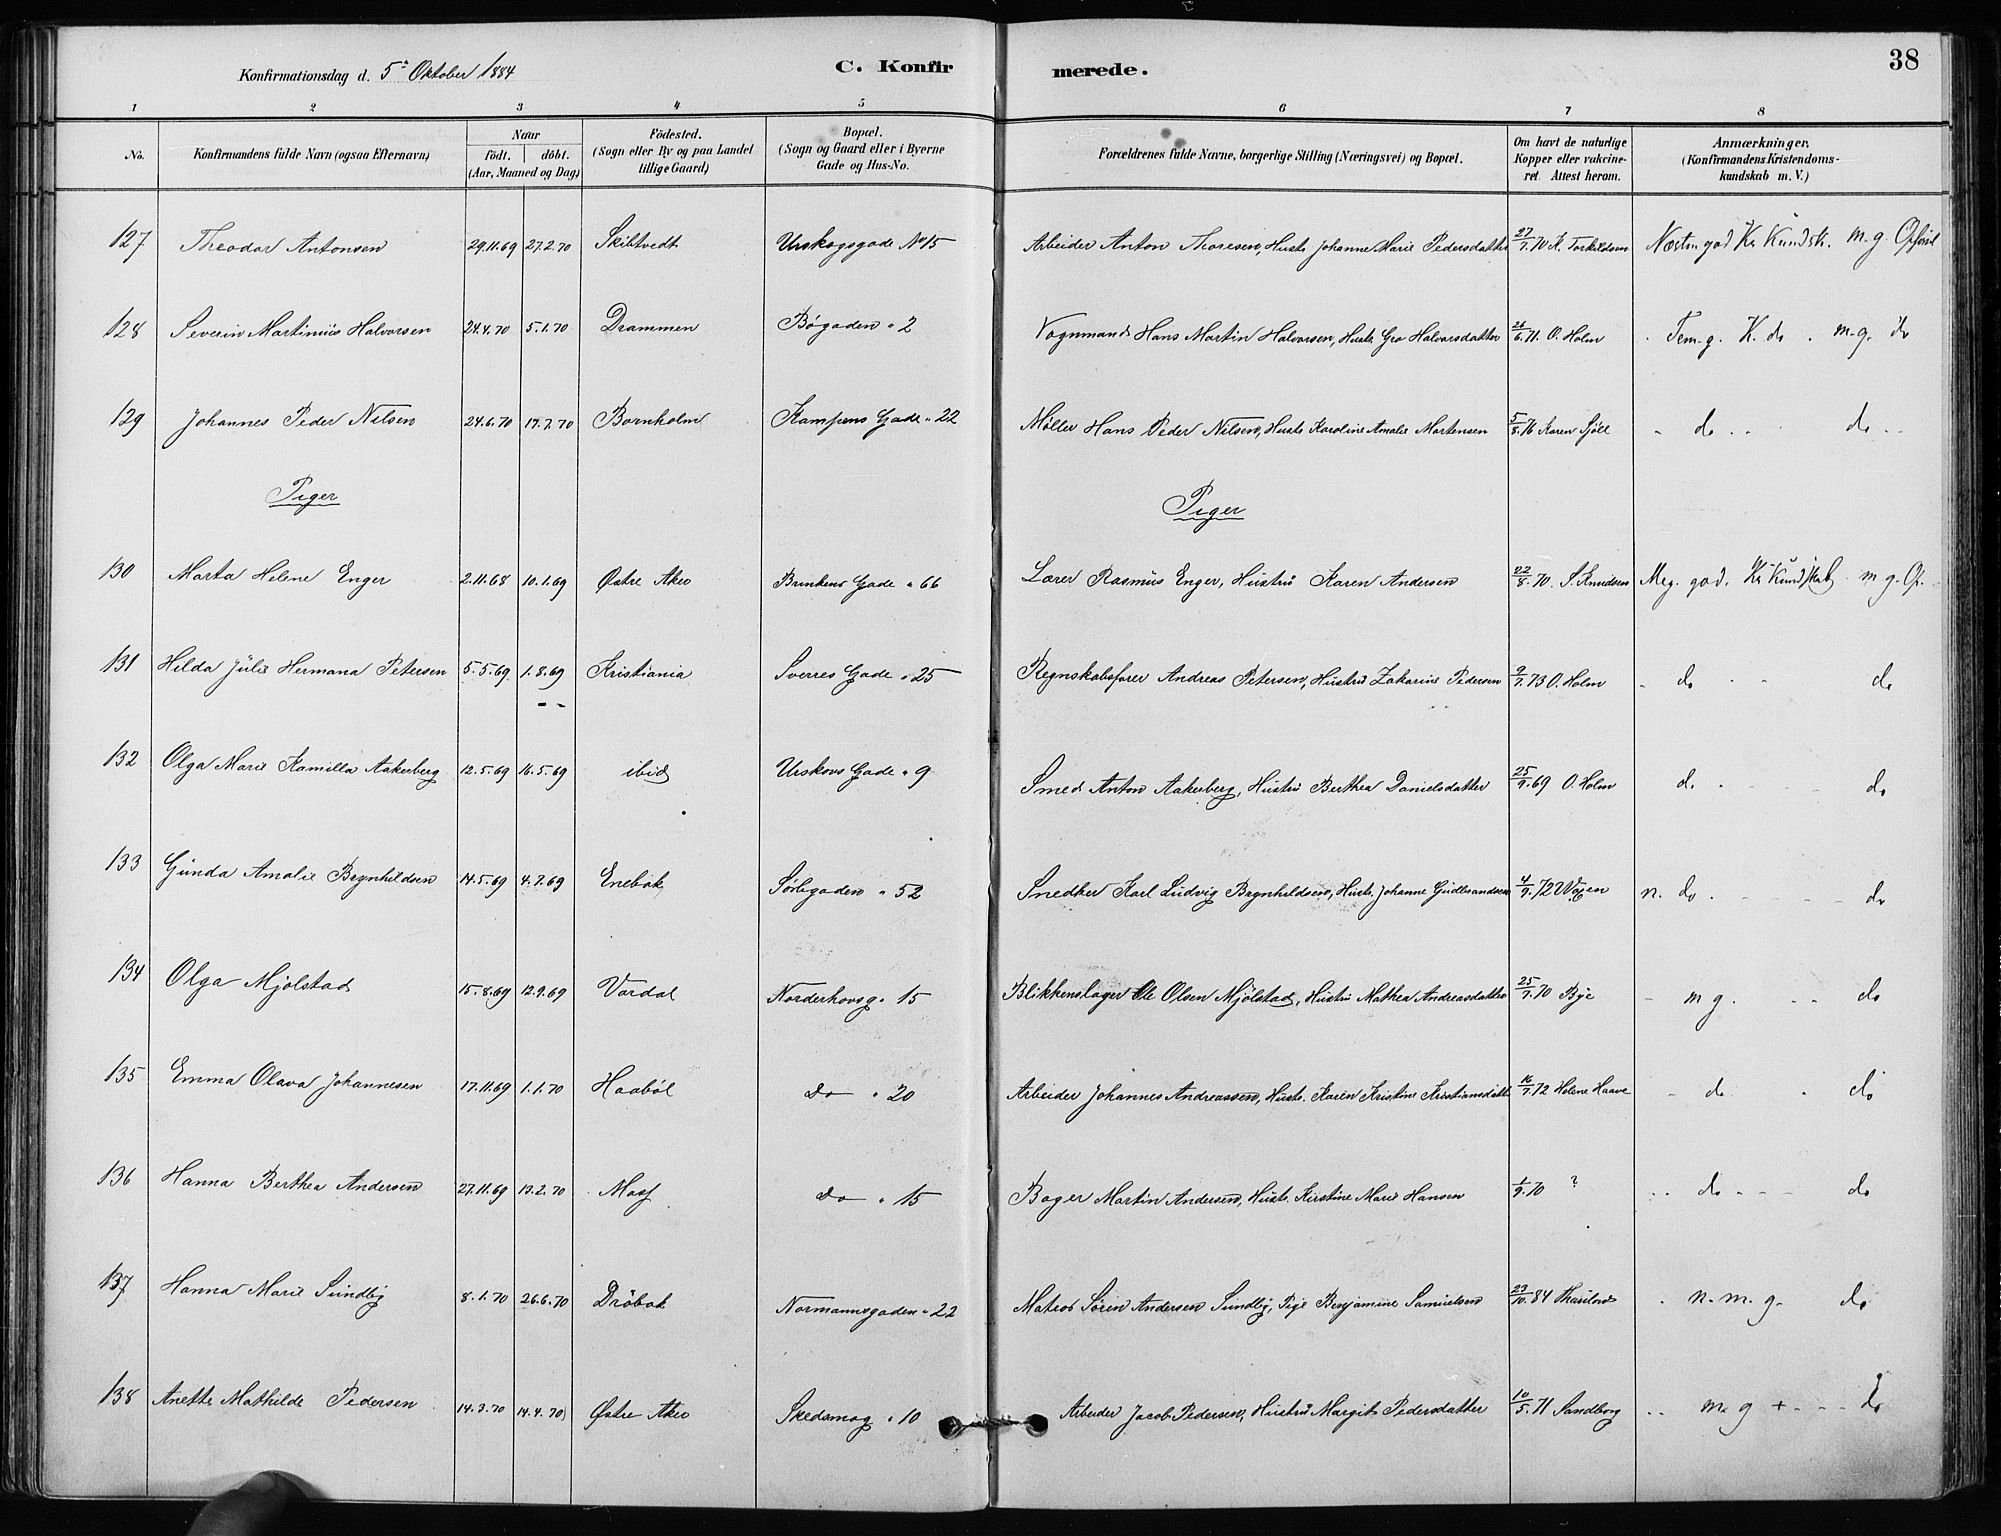 Konfirmationsdag d. 5te Oktober 1884 C. Konfir merede. 38
1 2 3 4 5 6 7 8
No. Konfirmandens fulde Navn (ogsaa Efternavn) Naar født. døbt. (Aar, Maaned og Dag) Fødested. (Sogn eller By og paa Landet tillige Gaard) Bopæl. (Sogn og Gaard eller i Byerne Gade og Hus-No. Forældrenes fulde Navne, borgerlige Stilling (Næringsvei) og Bopæl. Om havt de naturlige Kopper eller vakcineret. Attest herom. Anmærkninger. (Konfirmandens Kristendomskundskab m. V.)
127 Theodor Antonsen 29.11.69 27.2.70 Skibtvedt Urskogsgade No 15 Arbeider Anton Thoresen, Hustr. Johanne Marie Pedersdatter 27/7.70 K. Torkildsen Næsten god Kr Kundsk. m. g. Opførsel
128 Severin Martinius Halvorsen 24.4.70 5.1.70 Drammen Bøgaden " 2 Vognmand Hans Martin Halvorsen, Hustr. Gro Halvorsdatter 26/6.71. O. Holm Tem. g. K. do m. g. do
129 Johannes Peder Nilsen 24.6.70 17.7.70 Bornholm Kampens Gade " 22 Møller Hans Peder Nilsen, Hustr. Karoline Amalie Mortensen 5/8.76 Karen Sjöll " do " do
Piger Piger
130 Marta Helene Enger 2.11.68 10.1.69 Østre Aker Brinkens Gade " 66 Lærer Rasmus Enger, Hustru Karen Andersen 22/8.70. S. Knudsen Meg. god. Kr Kundskab m g. Op.
131 Hilda Julie Hermana Petersen 5.5.69 1.8.69 Kristiania Sverres Gade " 25 Regnskabsfører Andreas Petersen, Hustru Zakarine Pedersen 9/7.73 O. Holm " do " do
132 Olga Marie Kamilla Aakerberg 12.5.69 16.5.69 ibid Urskovs Gade " 9 Smed Anton Aakerberg, Hustru Berthea Danielsdatter 25/9.69 O. Holm do do
133 Gunda Amalie Brynhildsen 14.5.69 4.7.69 Enebak Sørligaden " 52 Snedker Karl Ludvig Brynhildsen, Hustr. Johanne Gudbrandsen 4/9.72 n. do do
134 Olga Mjølstad 15.8.69 12.9.69 Vardal Norderhovsg. " 15 Blikkenslager Ole Olsen Mjølstad, Hustru Mathea Andreasdatter 25/7.70 Bye " m g. do
135 Emma Olava Johannesen 17.11.69 1.1.70 Haabøl do " 20 Arbeider Johannes Andreassen, Hustr. Karen Kristine Kristiansdatt 16/7.72 Helene Haave " do do
136 Hanna Berthea Andersen 27.11.69 13.2.70 Moss do " 15 Bager Martin Andersen, Hustr. Kirstine Marie Hansen 1/9.70 ? " do do
137 Hanna Marie Sundby 8.1.70 26.6.70 Drøbak Normannsgaden " 22 Matros Søren Andersen Sundby, Pige Benjamine Samuelsen 23/10.84 Thaulow n. m. g. do
138 Anette Mathilde Pedersen 14.3.70 14.4.70 Østre Aker Skedsmog " 10 Arbeider Jacob Pedersen, Hustru Margit Pedersdatter 10/5.71 Sandborg " m. g + do